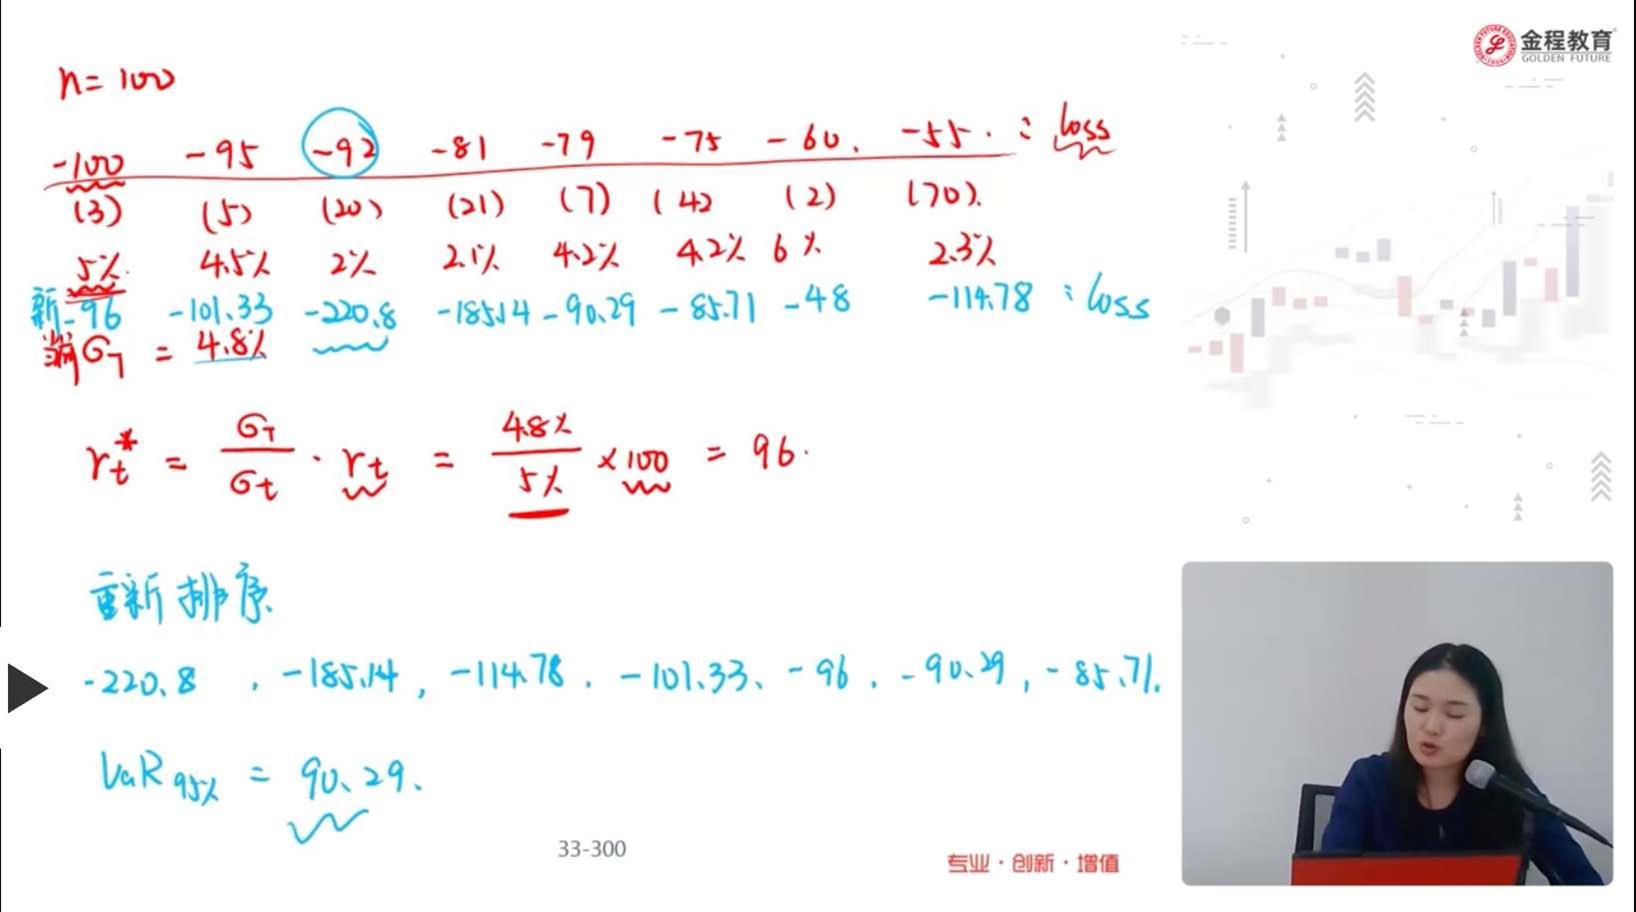 金程教育
GOLDEN FUTURE
n = 100
-100 -95 -92 -81 -79 -75 -60. -55. : loss
(3) (5) (20) (21) (7) (42 (2) (70).
5%. 4.5% 2% 2.1% 4.2% 4.2% 6% 2.3%
新-96 -101.33 -220.8 -185.14 -90.29 -85.71 -48 -114.78 : loss
当前σT = 4.8%
rt* = σT/σt · rt = 4.8%/5% × 100 = 96.
重新排序.
-220.8 , -185.14, -114.78 . -101.33、-96 . -90.29, -85.71.
VaR95% = 90.29.
33-300
专业·创新·增值